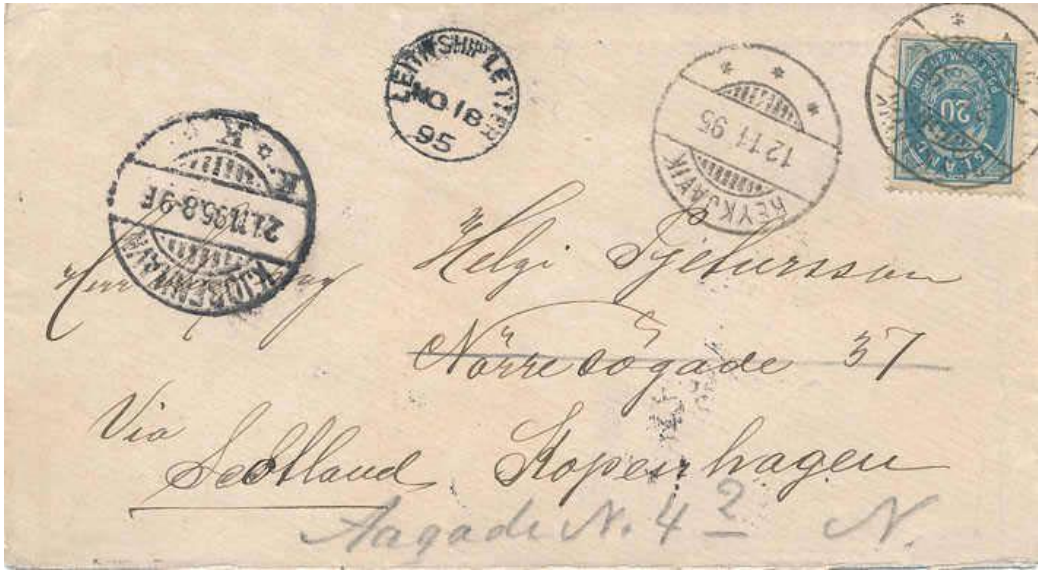 LEITH SHIP LETTER
NO 18
95
REYKJAVIK
12.11.95
20
ISLAND
KJØBENHAVN
21.11.95.8-9 F
K. K.
Herr
Helgi Pjetursson
Nörresögade 37
Via
Scotland Kopenhagen
Aagade N. 4 2 N.